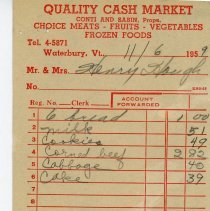 QUALITY CASH MARKET
CONTI AND SABIN, Props.
CHOICE MEATS - FRUITS - VEGETABLES
FROZEN FOODS
Tel. 4-5871
Waterbury, Vt., 11/6 1959
Mr. & Mrs. Henry Hough
Reg. No. Clerk ACCOUNT FORWARDED
1 6 bread 1 00
2 milk 51
3 Cookies 49
4 Corned beef 2 82
5 Cabbage 40
6 Cake 39
7
8